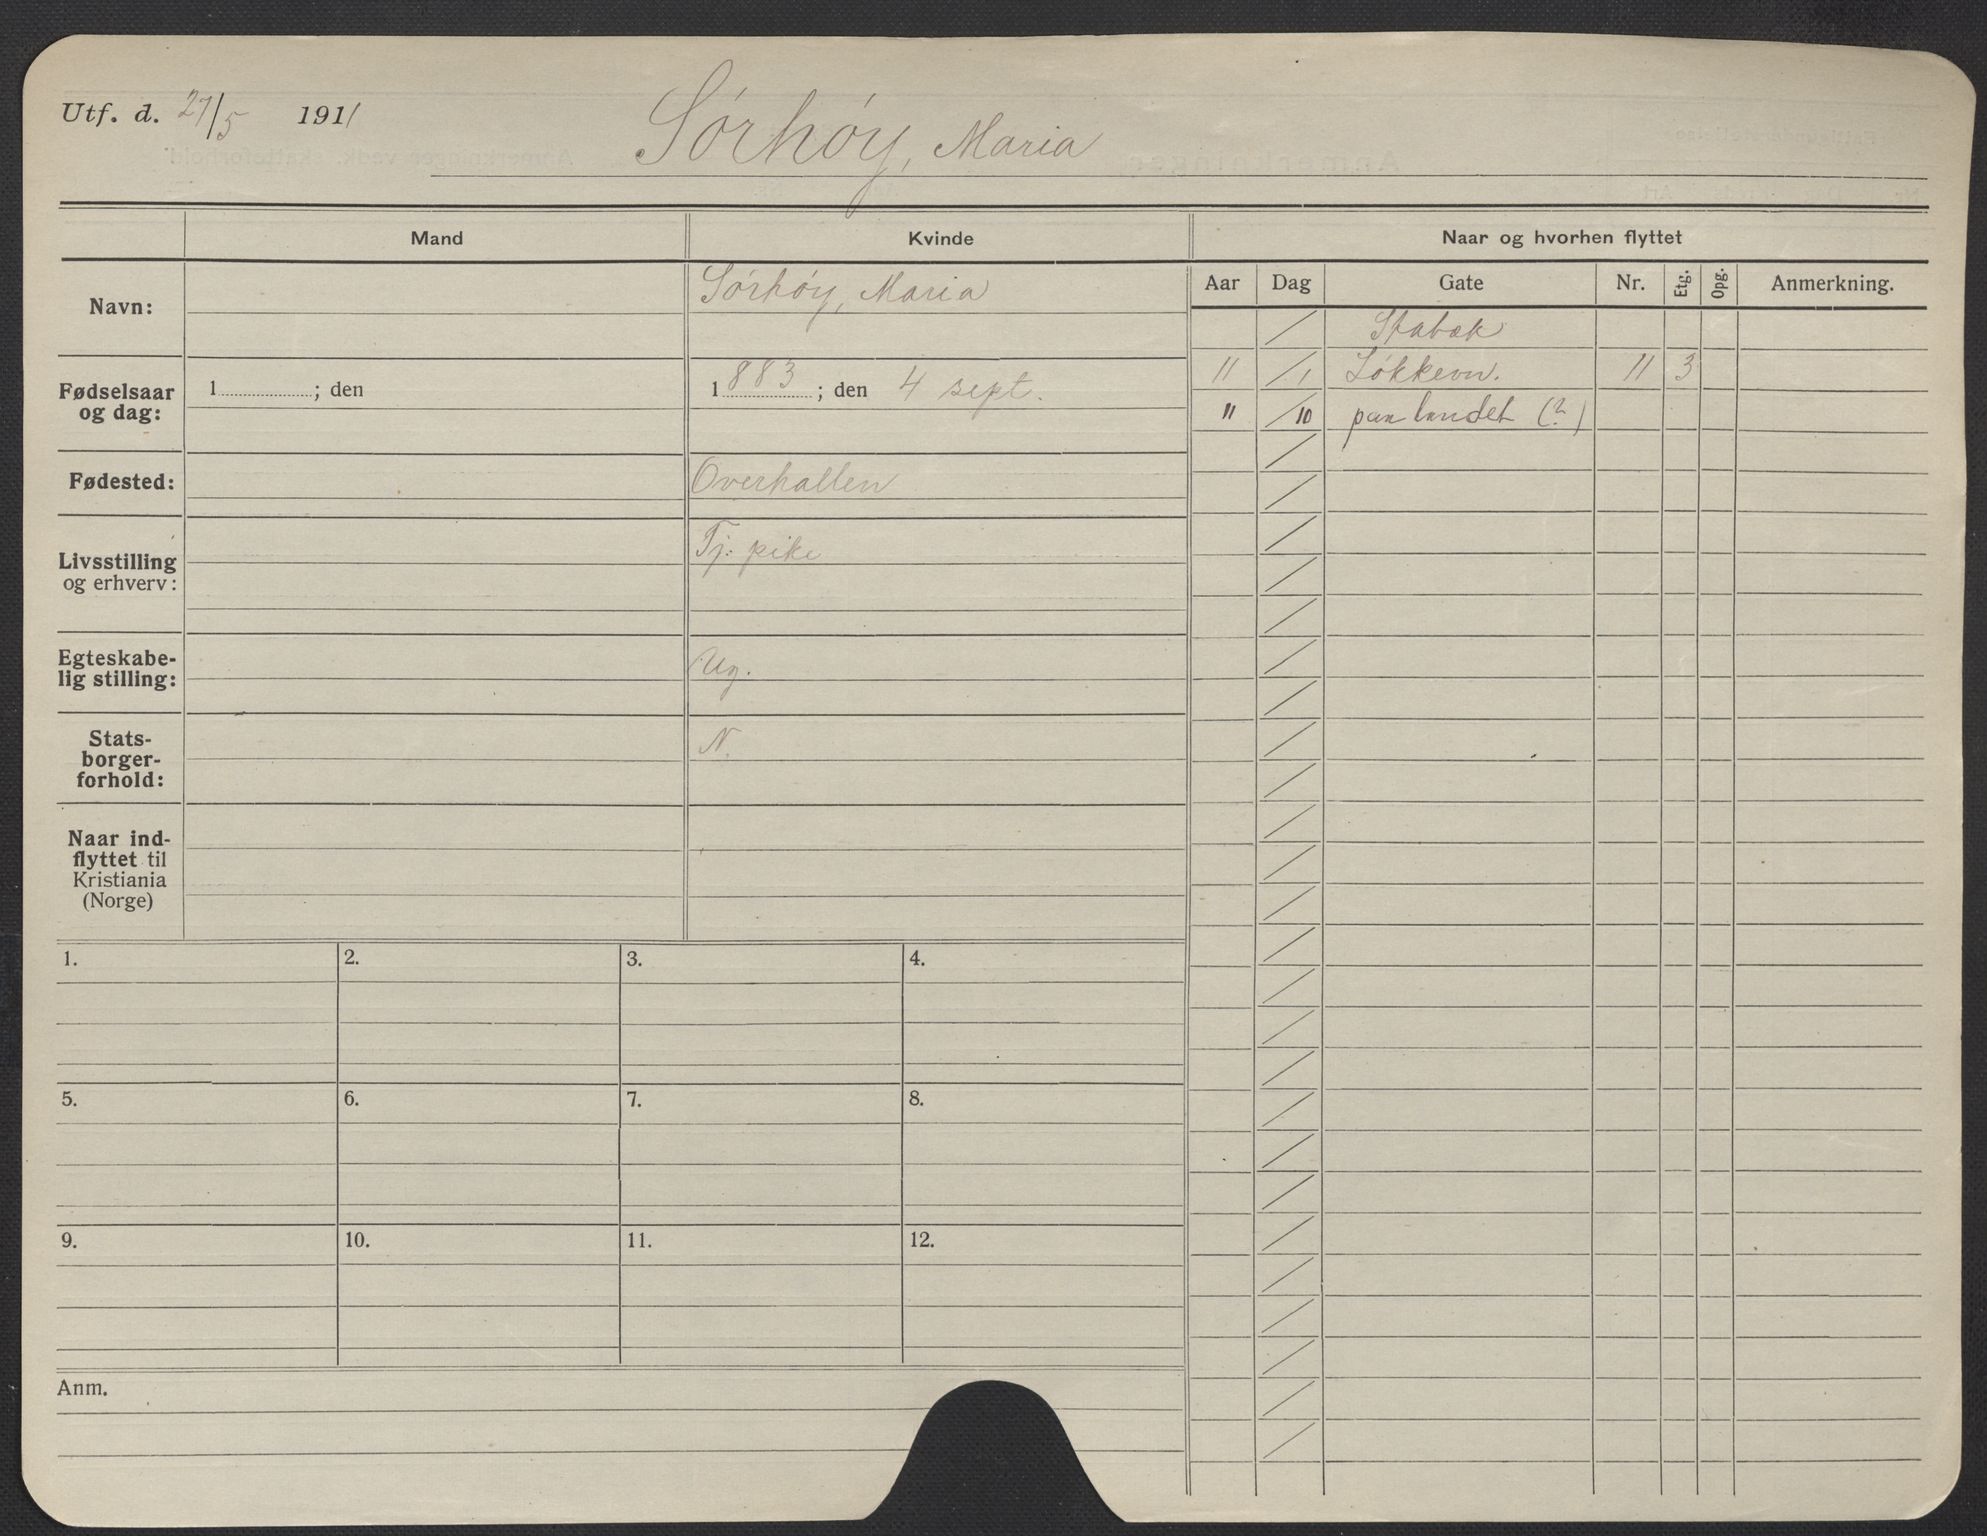 Utf. d. 27/5 1911
Sórhóy, Maria
Mand
Kvinde
Naar og hvorhen flyttet
Aar Dag Gate Nr. Etg. Opg. Anmerkning.
Navn:
Sórhóy, Maria
Stabæk
11 /1 Løkkevn. 11 3
11 /10 paa landet (?)
Fødselsaar
og dag:
1 ; den
1883 ; den 4 sept.
Fødested:
Overhallen
Livsstilling
og erhverv:
Tj: pike
Egteskabe-
lig stilling:
Ug.
Stats-
borger-
forhold:
N.
Naar ind-
flyttet til
Kristiania
(Norge)
1. 2. 3. 4.
5. 6. 7. 8.
9. 10. 11. 12.
Anm.